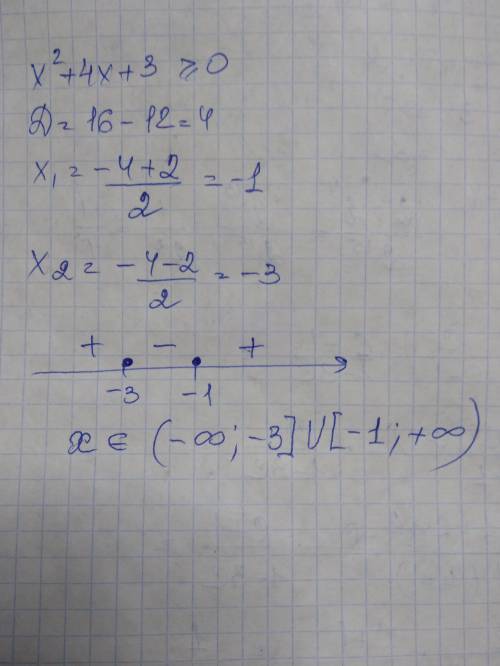 x² + 4x + 3 ⩾ 0
Д = 16 - 12 = 4
x₁ = (-4 + 2)/2 = -1
x₂ = (-4 - 2)/2 = -3
+ - +
-3 -1
x ∈ (-∞; -3] U [-1; +∞)